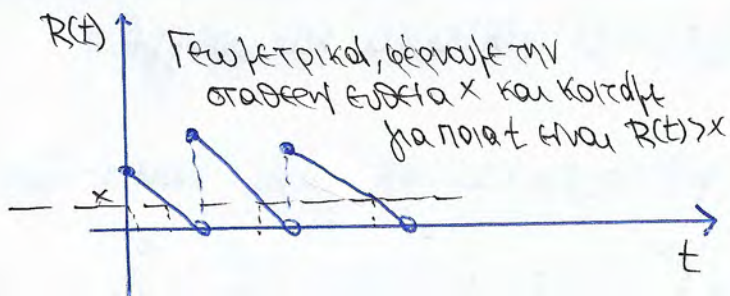 R(t)
Γεωμετρικά, φέρνουμε την
σταθερή ευθεία x και κοιτάμε
για ποια t είναι R(t)>x
x
t